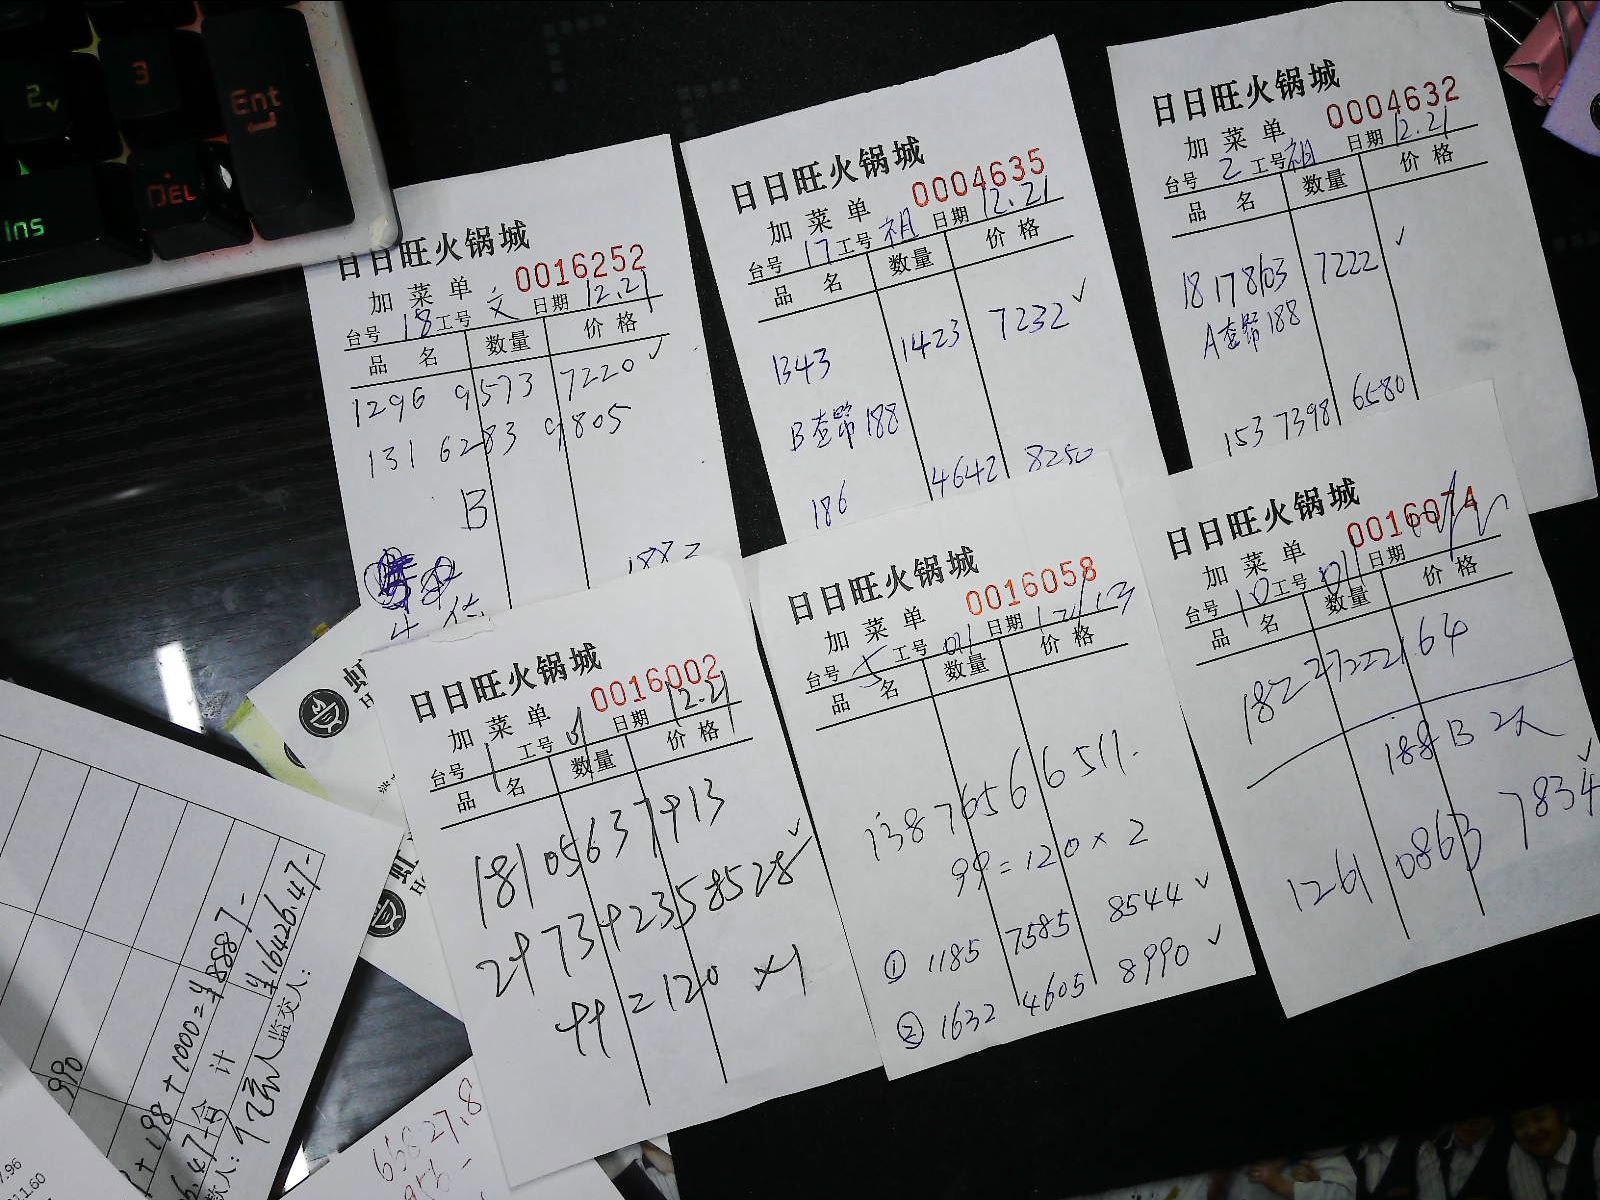 2
3
Ent
Ins
DEL
日日旺火锅城
0016252
加菜单
台号 18 工号 文 日期 12.21
品名 数量 价格
1296 9573 7220 ✓
131 6283 9805
B
日日旺火锅城
0004635
加菜单
台号 17 工号 祖 日期 12.21
品名 数量 价格
1343 1423 7232 ✓
B套餐 188
186 4642 8250
日日旺火锅城
0004632
加菜单
台号 2 工号 祖 日期 12.21
品名 数量 价格
18 178103 7222 ✓
A套餐 188
153 7398 6580
日日旺火锅城
0016002
加菜单
台号 1 工号 01 日期 12.21
品名 数量 价格
181 0563 7913
2973 9235 8528 ✓
99=120 ×1
日日旺火锅城
0016058
加菜单
台号 5 工号 011 日期 12/13
品名 数量 价格
138 7656 6511.
99=120×2
① 1185 7585 8544 ✓
② 1632 4605 8990 ✓
日日旺火锅城
0016074
加菜单
台号 10 工号 011 日期
品名 数量 价格
182 27222164
188B 2人
1261 0863 7834 ✓
虹
虹
990
+198+1000=¥8887-
合计
¥16426.47-
监交人:
款人:
66827.8
7.96
11.60